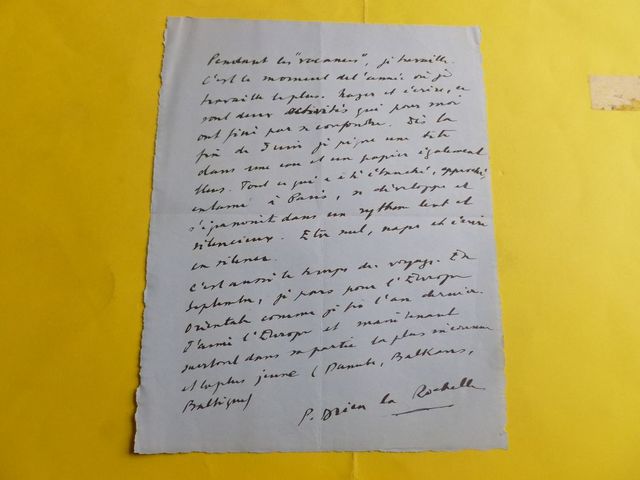 Pendant les "vacances", je travaille.
C'est le moment de l'année où je
travaille le plus. Nager et écrire, ce
sont deux activités qui pour moi
ont fini par se confondre. Dès la
fin de Juin je pique une tête
dans une eau et un papier également
bleus. Tout ce qui a été ébauché, approché,
entamé à Paris, se développe et
s'épanouit dans un rythme lent et
silencieux. Etre seul, nager et écrire
en silence.
C'est aussi le temps du voyage. En
Septembre, je pars pour l'Europe
Orientale comme je fis l'an dernier.
J'aime l'Europe et maintenant
surtout dans sa partie la plus méconnue
et la plus jeune (Danube, Balkans,
Baltique)
P. Drieu la Rochelle